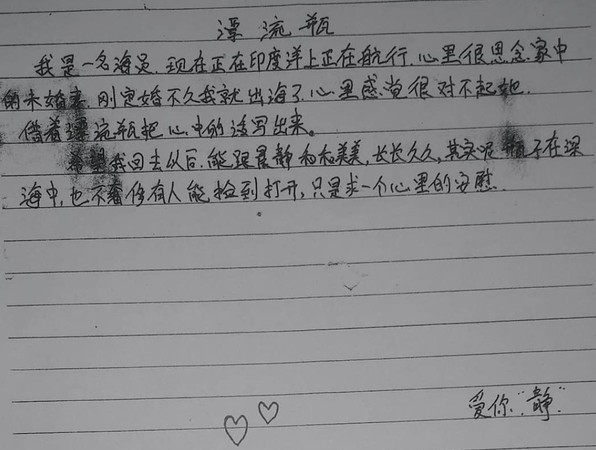 漂流瓶
我是一名海员.现在正在印度洋上正在航行.心里很思念家中
的未婚妻.刚定婚不久我就出海了.心里感觉很对不起她.
借着漂流瓶把心中的话写出来。
希望我回去以后.能跟晨静和和美美,长长久久,其实呢 瓶子在深
海中,也不奢侈有人能捡到打开,只是求一个心里的安慰.
爱你"静"